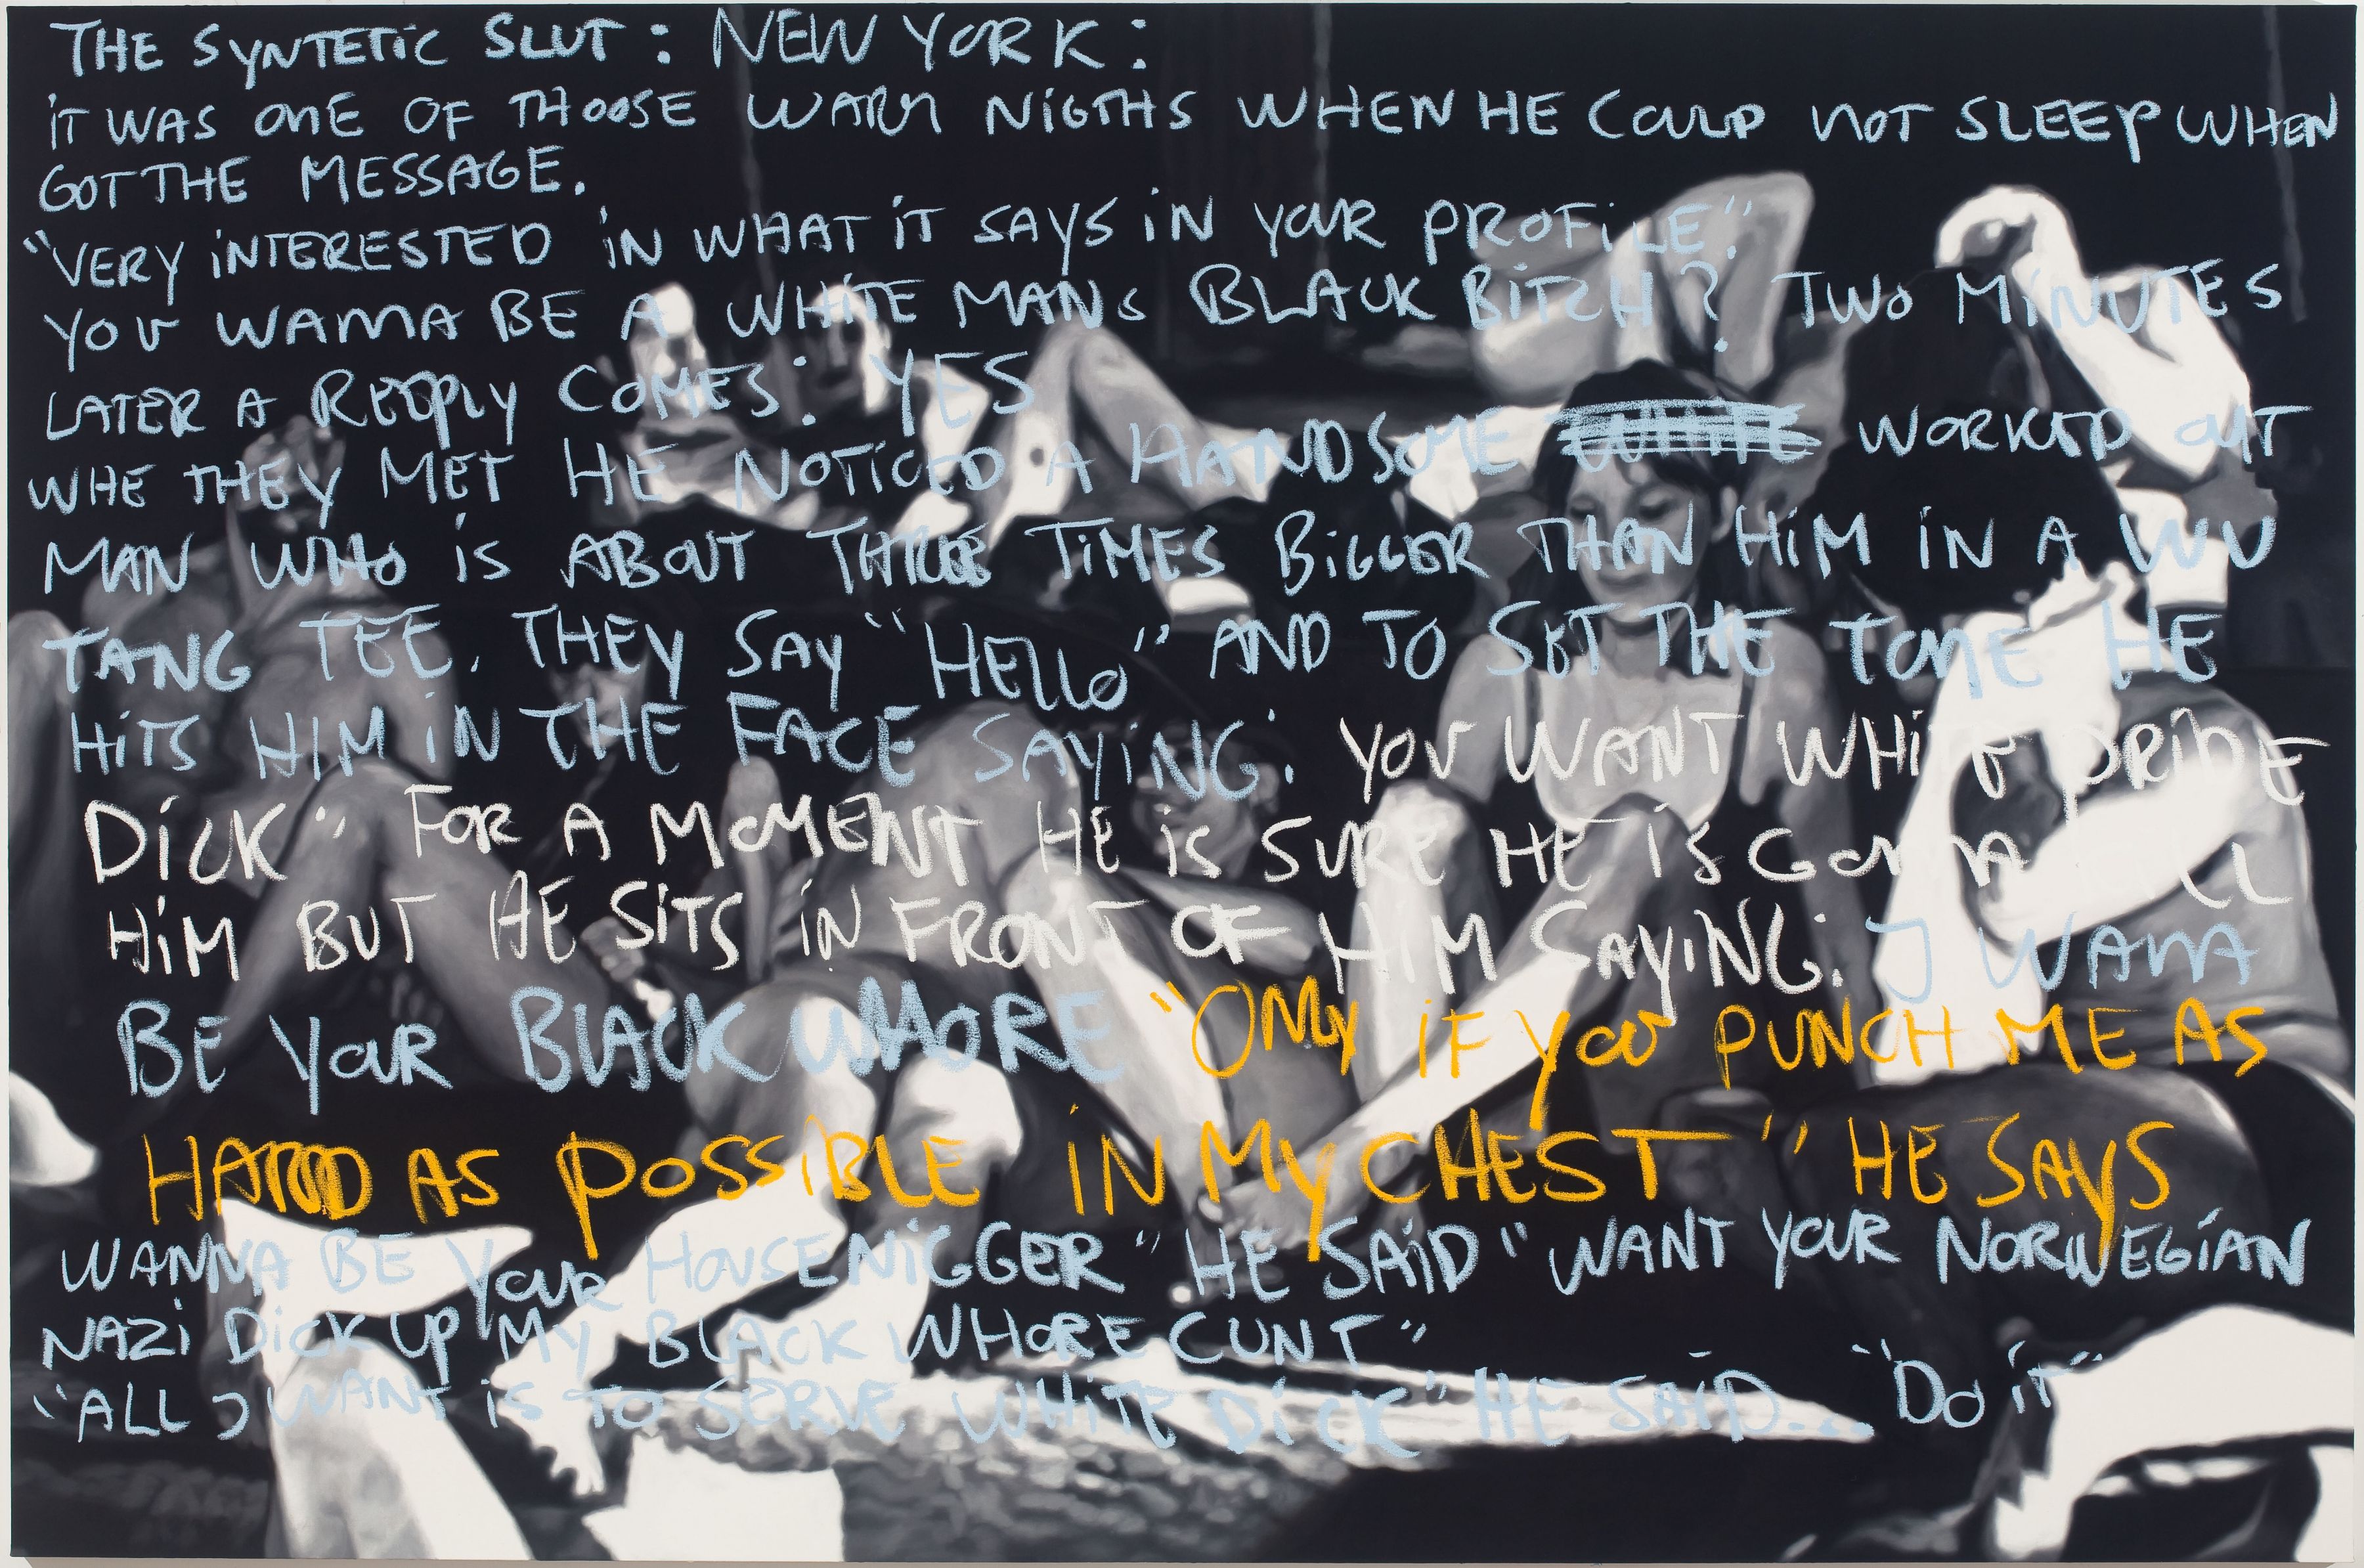 THE SYNTETIC SLUT: NEW YORK:
iT WAS ONE OF THOOSE WARM NiGTHS WHEN HE COULD NOT SLEEP WHEN
GOT THE MESSAGE.
"VERY iNTERESTED iN WHAT iT SAYS iN YOUR PROFiLE."
YOU WANNA BE A WHiTE MANS BLACK BiTCH? TWO MiNUTES
LATER A REPPLY COMES: YES
WHE THEY MET HE NOTiCED A HANDSOME WORKED OUT
MAN WHO iS ABOUT THREE TiMES BiGGER THAN HiM iN A WU
TANG TEE. THEY SAY "HELLO" AND TO SET THE TONE HE
HiTS HiM iN THE FACE SAYiNG: YOU WANT WHiTE PRiDE
DiCK" FOR A MOMENT HE iS SURE HE iS GONNA KILL
HiM BUT HE SiTS iN FRONT OF HiM SAYiNG: I WANA
BE YOUR BLACK WHORE "ONLY iF YOU PUNCH ME AS
HARD AS POSSiBLE iN MY CHEST" HE SAYS
WANNA BE YOUR HOUSENiGGER" HE SAiD "WANT YOUR NORWEGiAN
NAZi DiCK UP MY BLACK WHORE CUNT"
"ALL I WANT iS TO SERVE WHiTE DiCK" HE SAiD... "DO iT"